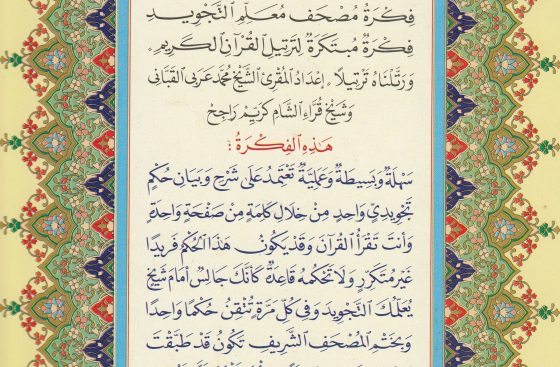 فِكْرَةُ مُصْحَفِ مُعَلِّمِ ٱلتَّجْوِيدِ
فِكْرَةٌ مُبْتَكَرَةٌ لِتَرْتِيلِ ٱلْقُرْآنِ ٱلْكَرِيمِ،
وَرَتَّلْنَاهُ تَرْتِيلًا، إِعْدَادُ ٱلْمُقْرِئِ ٱلشَّيْخِ مُحَمَّد عَرَبِي ٱلْقَبَّانِي
وَشَيْخِ قُرَّاءِ ٱلشَّامِ كُرَيِّم رَاجِح
هَذِهِ ٱلْفِكْرَةُ:
سَهْلَةٌ وَبَسِيطَةٌ وَعَمَلِيَّةٌ تَعْتَمِدُ عَلَى شَرْحِ وَبَيَانِ حُكْمٍ
تَجْوِيدِيٍّ وَاحِدٍ مِنْ خِلَالِ كَلِمَةٍ مِنْ صَفْحَةٍ وَاحِدَةٍ
وَأَنْتَ تَقْرَأُ ٱلْقُرْآنَ وَقَدْ يَكُونُ هَذَا ٱلْحُكْمُ فَرِيدًا
غَيْرَ مُتَكَرِّرٍ وَلَا تَحْكُمُهُ قَاعِدَةٌ كَأَنَّكَ جَالِسٌ أَمَامَ شَيْخٍ
يُعَلِّمُكَ ٱلتَّجْوِيدَ وَفِي كُلِّ مَرَّةٍ تُتْقِنُ حُكْمًا وَاحِدًا
وَبِخَتْمِ ٱلْمُصْحَفِ ٱلشَّرِيفِ تَكُونُ قَدْ طَبَّقْتَ